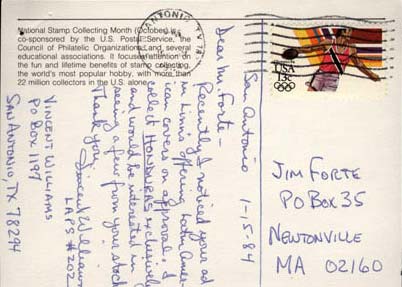 National Stamp Collecting Month (October) is
co-sponsored by the U.S. Postal Service, the
Council of Philatelic Organizations and several
educational associations. It focuses attention on
the fun and lifetime benefits of stamp collecting,
the world's most popular hobby, with more than
22 million collectors in the U.S. alone.
SAN ANTONIO, TX 78
USA
13c
San Antonio 1-15-84
Dear Mr. Forte -
Recently I noticed your ad
in Linn's offering Latin Amer-
ican covers on approval. I
collect HONDURAS exclusively
and would be interested in
seeing a few from your stock.
Thank you,
Vincent Williams
LAPS #202
VINCENT WILLIAMS
PO BOX 1197
SAN ANTONIO, TX 78294
JIM FORTE
PO BOX 35
NEWTONVILLE
MA 02160